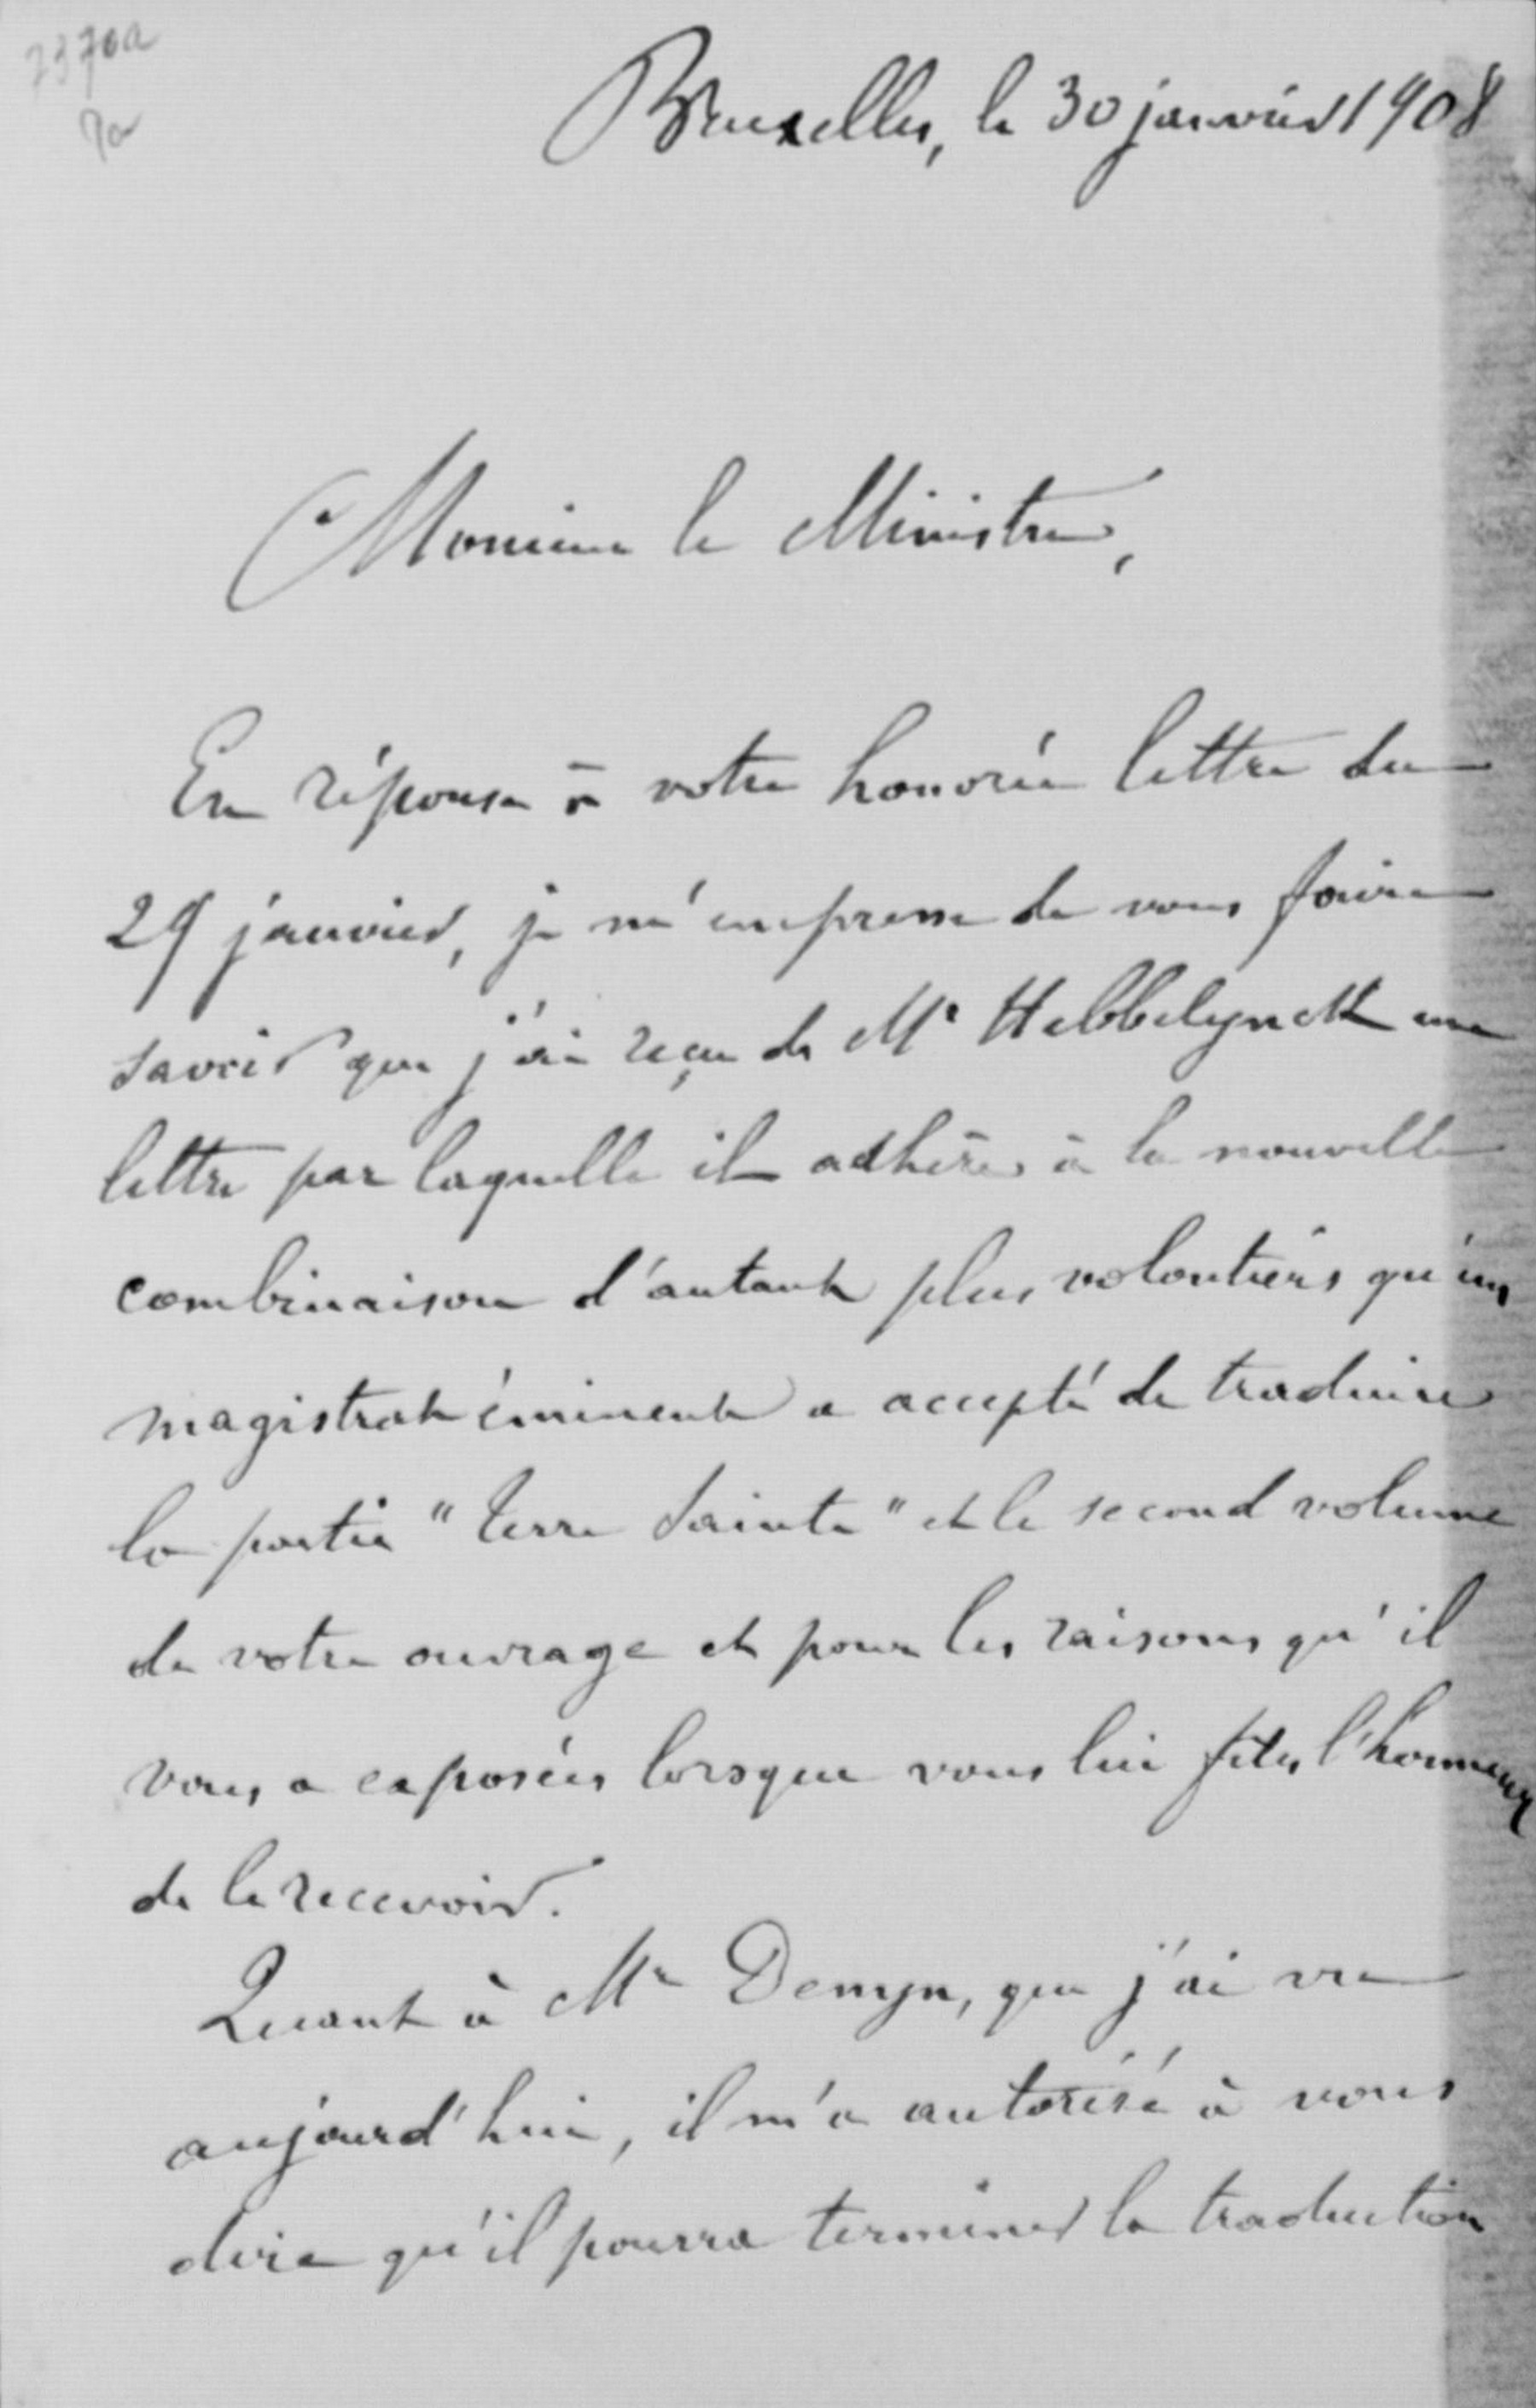 Bruxelles, le 30 janvier 1908
Monsieur le Ministre,
En réponse à votre honorée lettre du
29 janvier, je m'empresse de vous faire
savoir que j'ai reçu de Mr Hebbelynck une
lettre par laquelle il adhère à la nouvelle
combinaison d'autant plus volontiers qu'un
magistrat éminent a accepté de traduire
la partie "Terre Sainte" et le second volume
de votre ouvrage et pour les raisons qu'il
vous a exposées lorsque vous lui fîtes l'honneur
de le recevoir.
Quant à Mr Demyn, que j'ai vu
aujourd'hui, il m'a autorisé à vous
dire qu'il pourra terminer la traduction